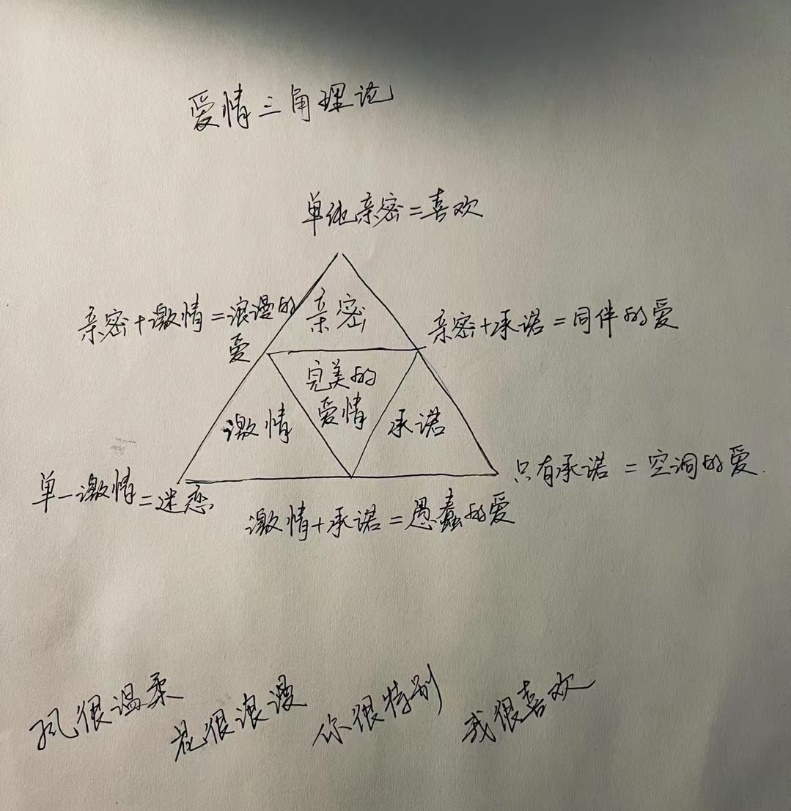 爱情三角理论
单纯亲密=喜欢
亲密+激情=浪漫的
爱
亲密
亲密+承诺=同伴的爱
完美的
爱情
激情
承诺
单一激情=迷恋
只有承诺=空洞的爱.
激情+承诺=愚蠢的爱
风很温柔
花很浪漫
你很特别
我很喜欢